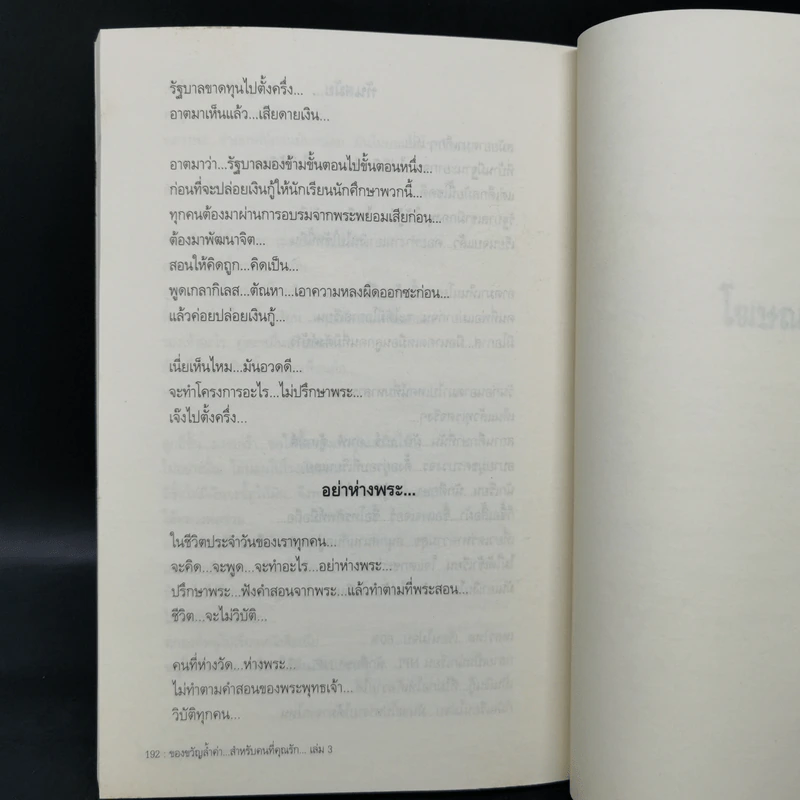 รัฐบาลขาดทุนไปตั้งครึ่ง...
อาตมาเห็นแล้ว...เสียดายเงิน...
อาตมาว่า...รัฐบาลมองข้ามขั้นตอนไปขั้นตอนหนึ่ง...
ก่อนที่จะปล่อยเงินกู้ให้นักเรียนนักศึกษาพวกนี้...
ทุกคนต้องมาผ่านการอบรมจากพระพยอมเสียก่อน...
ต้องมาพัฒนาจิต...
สอนให้คิดถูก...คิดเป็น...
พูดเกลากิเลส...ตัณหา...เอาความหลงผิดออกซะก่อน...
แล้วค่อยปล่อยเงินกู้...
เนี่ยเห็นไหม...มันอวดดี...
จะทำโครงการอะไร...ไม่ปรึกษาพระ...
เจ๊งไปตั้งครึ่ง...
อย่าห่างพระ...
ในชีวิตประจำวันของเราทุกคน...
จะคิด...จะพูด...จะทำอะไร...อย่าห่างพระ...
ปรึกษาพระ...ฟังคำสอนจากพระ...แล้วทำตามที่พระสอน...
ชีวิต...จะไม่วิบัติ...
คนที่ห่างวัด...ห่างพระ...
ไม่ทำตามคำสอนของพระพุทธเจ้า...
วิบัติทุกคน...
192 : ของขวัญล้ำค่า...สำหรับคนที่คุณรัก... เล่ม 3